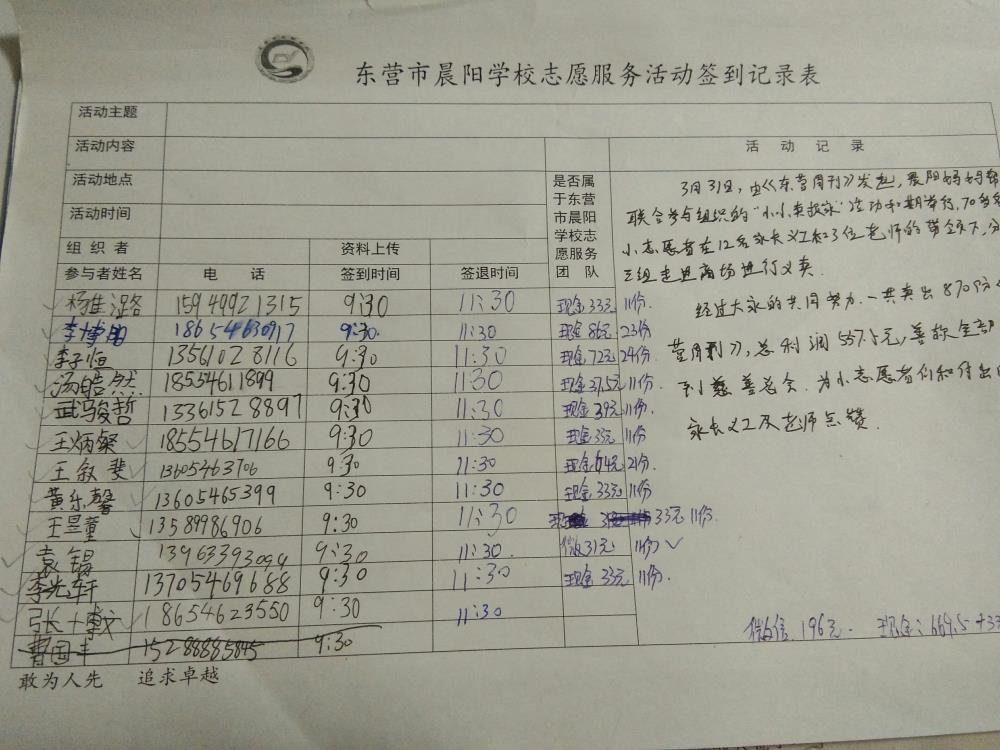 东营市晨阳学校志愿服务活动签到记录表
活动主题
活动内容
活动地点
活动时间
组织者 资料上传
参与者姓名 电话 签到时间 签退时间
是否属
于东营
市晨阳
学校志
愿服务
团队
活动记录
3月31日,由《东营周刊》发起,晨阳妈妈
联合参与组织的"小小卖报家"活动如期举行,70多
小志愿者在12名家长义工和3位老师的带领下,分
三组走进商场进行义卖.
经过大家的共同努力.一共卖出870份
营周刊》,总利润557.5元,善款全部
到慈善总会.为小志愿者们和付出的
家长义工及老师点赞.
杨佳潞 15949921315 9:30 11:30 现金33元 11份.
李博 18654630917 9:30. 11:30 现金86元 23份
李子恒 13561028116 9:30 11:30 现金72元 24份.
汤皓然 18554611899 9:30 11:30 现金37.5元 11份.
武骏哲 13361528897 9:30 11:30 现金39元 11份
王炳燊 18554617166 9:30 11:30 现金3元 11份
王叙斐 13605463706 9:30 11:30 现金 元 21份.
黄乐馨 13605465399 9:30 11:30 现金33元 11份
王昱童 13589986906 9:30 11:30 33元 11份.
袁锡 13963393099 9:30 11:30. 微31元 11份
李光轩 13705469688 9:30 11:30 现金33元 11份.
张博文 18654623550 9:30 11:30
曹国丰 15288885845 9:30
微信196元. 现金:669.5+33
敢为人先 追求卓越